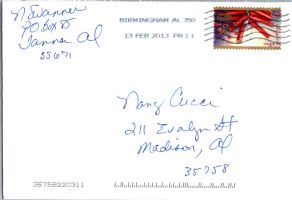 N Swanner
PO Box 85
Tanner Al
35671
BIRMINGHAM AL 350
13 FEB 2013 PM 1 L
Nancy Cucci
211 Evalyn St
Madison, Al
35758
35758220311